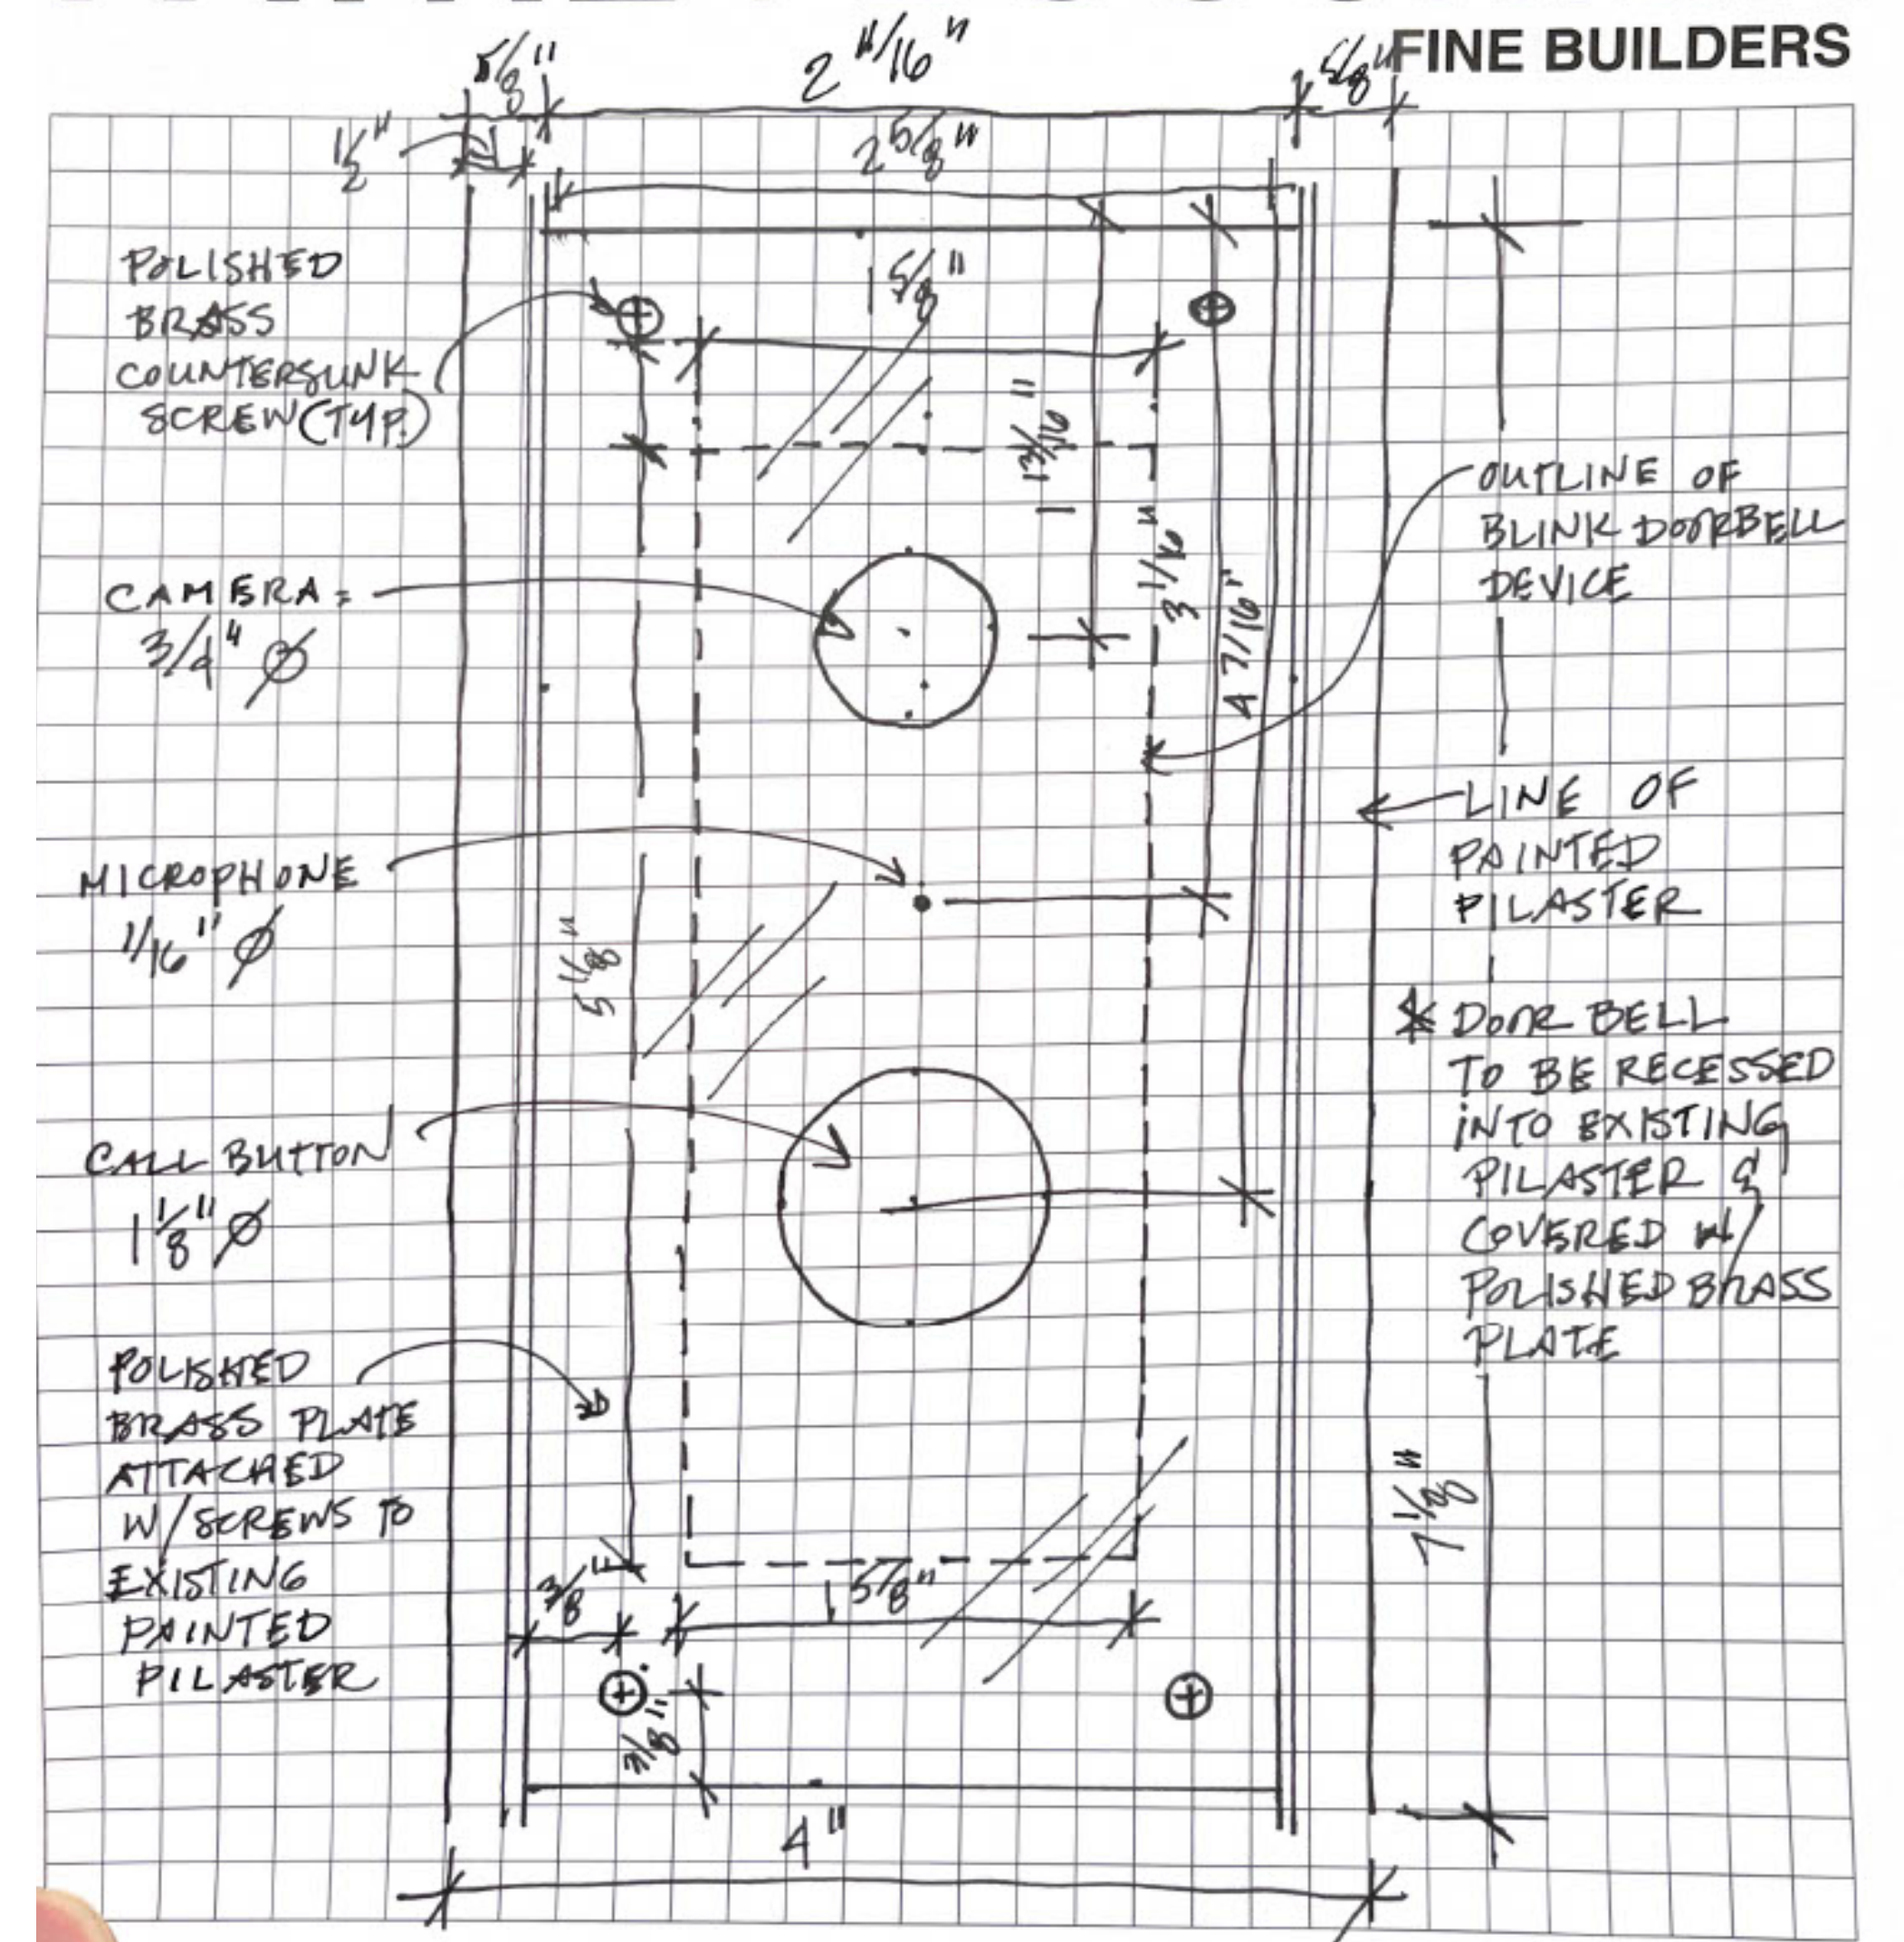 FINE BUILDERS
5/8"
2 11/16"
5/8"
1/2"
2 5/8"
POLISHED
BRASS
COUNTERSUNK
SCREW (TYP.)
1 5/8"
1 13/16"
3 1/16"
4 7/16"
OUTLINE OF
BLINK DOORBELL
DEVICE
CAMERA =
3/4" Ø
LINE OF
PAINTED
PILASTER
MICROPHONE
1/16" Ø
5 1/8"
* DOOR BELL
TO BE RECESSED
INTO EXISTING
PILASTER &
COVERED W/
POLISHED BRASS
PLATE
CALL BUTTON
1 1/8" Ø
POLISHED
BRASS PLATE
ATTACHED
W/SCREWS TO
EXISTING
PAINTED
PILASTER
7 1/8"
3/8"
1 5/8"
3/8"
4"